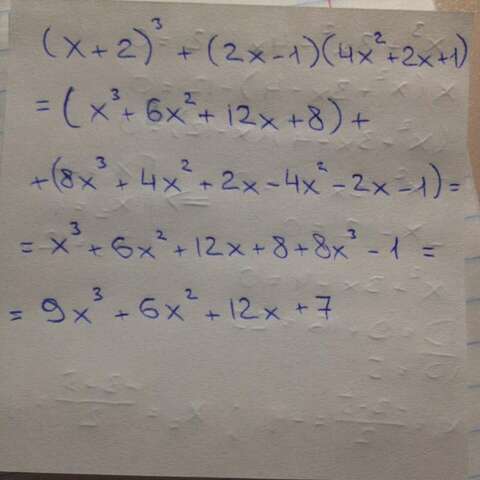 (x+2)³ + (2x-1)(4x²+2x+1)
= (x³+6x²+12x+8)+
+(8x³+4x²+2x-4x²-2x-1)=
= x³+6x²+12x+8+8x³-1 =
= 9x³+6x²+12x+7